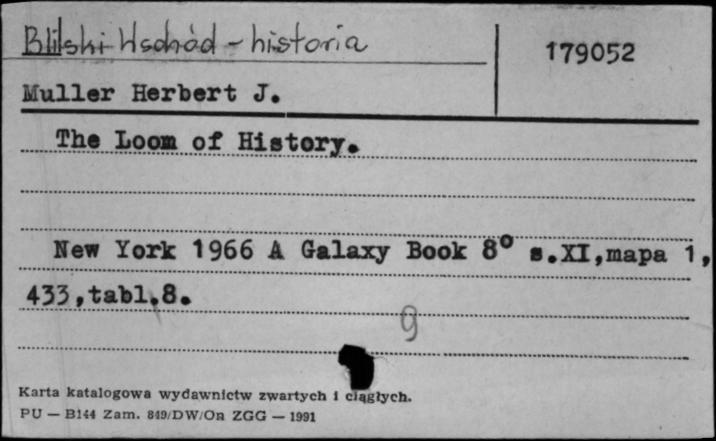 Bliski Wschód – historia
179052
Muller Herbert J.
The Loom of History.
New York 1966 A Galaxy Book 8° s.XI,mapa 1,
433,tabl.8.
9
Karta katalogowa wydawnictw zwartych i ciągłych.
PU — B144 Zam. 849/DW/On ZGG — 1991